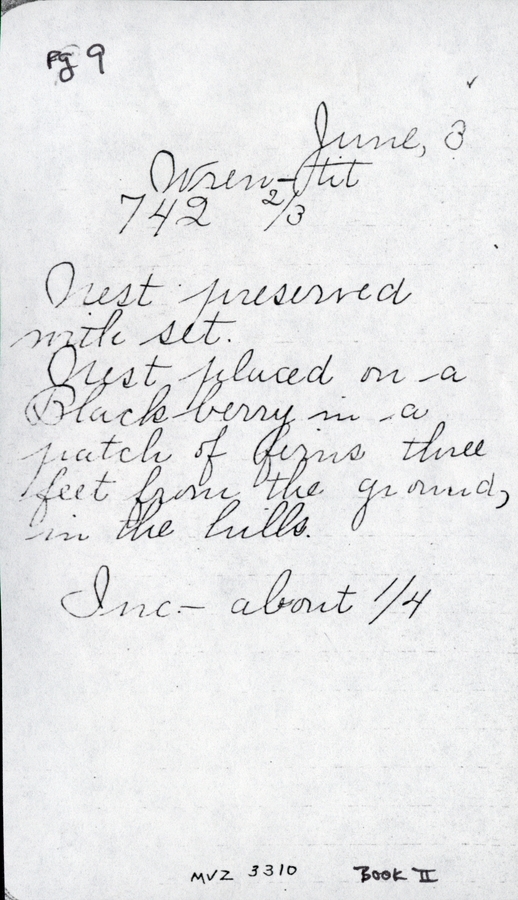 Pg 9
June, 3
Wren-tit
742 2/3
Nest preserved
with set.
Nest placed on a
Blackberry in a
patch of ferns three
feet from the ground,
in the hills.
Inc- about 1/4
MVZ 3310 BOOK II